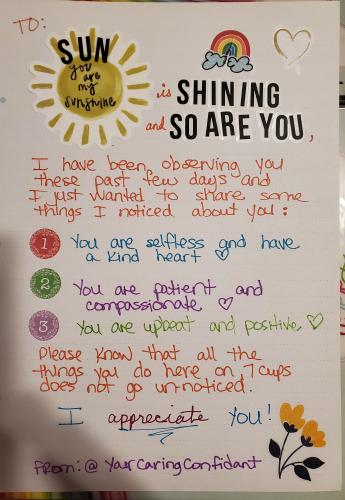 TO:
SUN
you are
my
sunshine
is SHINING
and SO ARE YOU,
I have been observing you
these past few days and
I just wanted to share some
things I noticed about you:
1 You are selfless and have
a kind heart ♡
2 You are patient and
compassionate ♡
3 You are upbeat and positive ♡
Please know that all the
things you do here on 7cups
does not go un-noticed.
I appreciate you!
From: @YourCaringConfidant